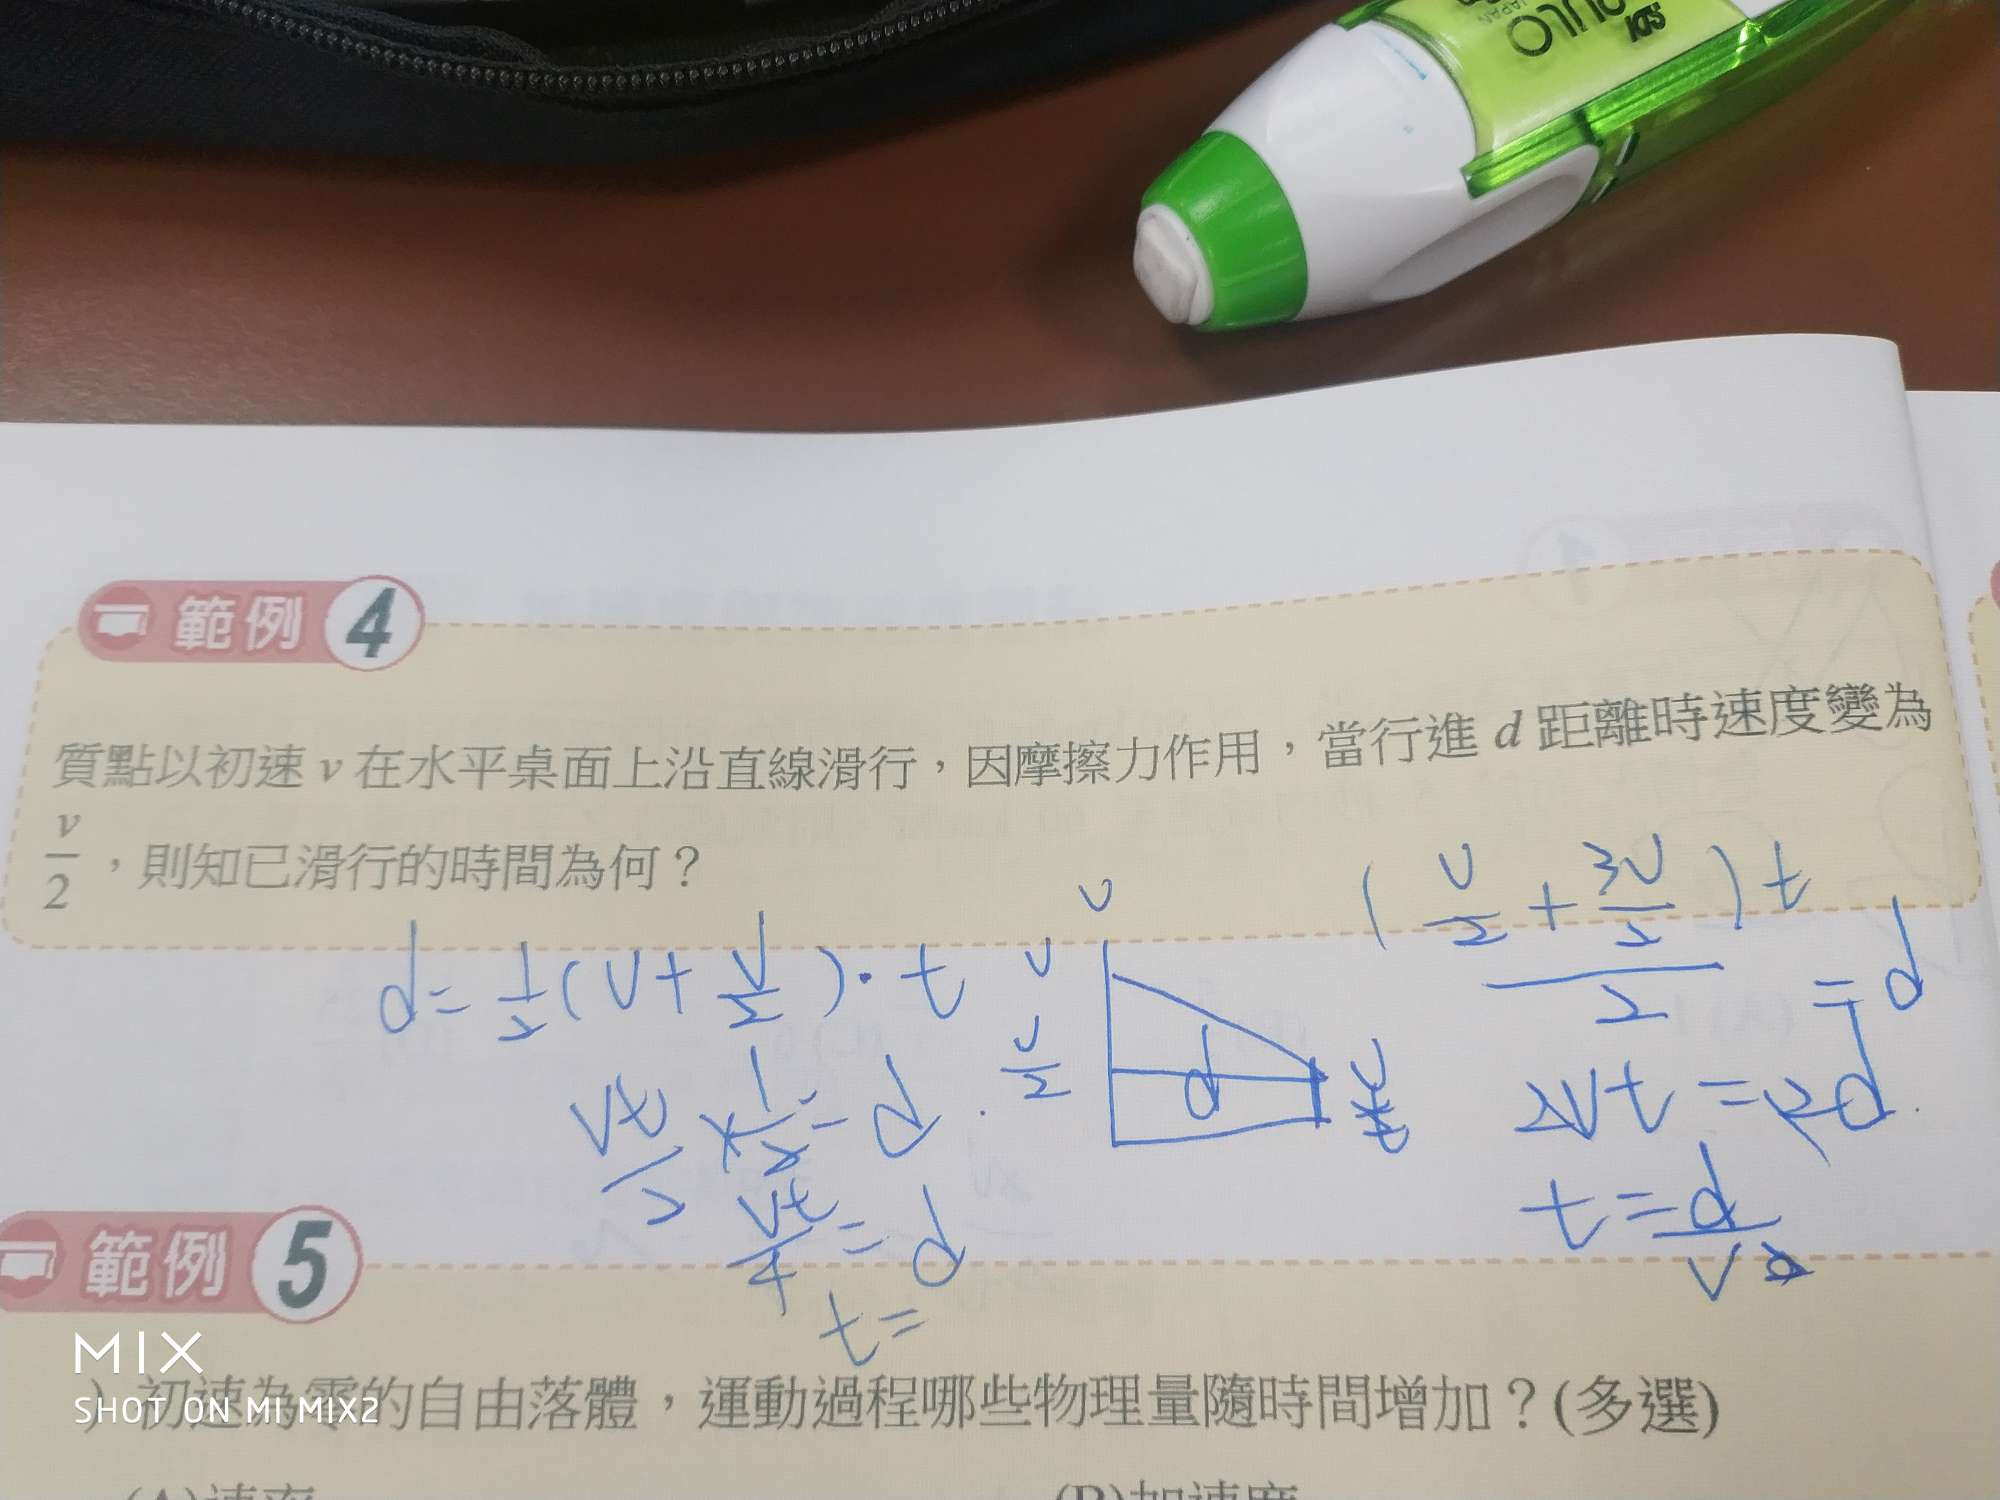 JAPAN
範例 4
質點以初速 v 在水平桌面上沿直線滑行，因摩擦力作用，當行進 d 距離時速度變為
v/2，則知已滑行的時間為何？
d = 1/2 (v + v/2) · t
vt/2 × 1/2 = d
vt/4 = d
t =
v
v
v/2
d
(v/2 + 3v/2) t / 2 = d
2vt = 2d
t = d/v
範例 5
) 初速為零的自由落體，運動過程哪些物理量隨時間增加？(多選)
(A)速率
(B)加速度
MIX
SHOT ON MI MIX2